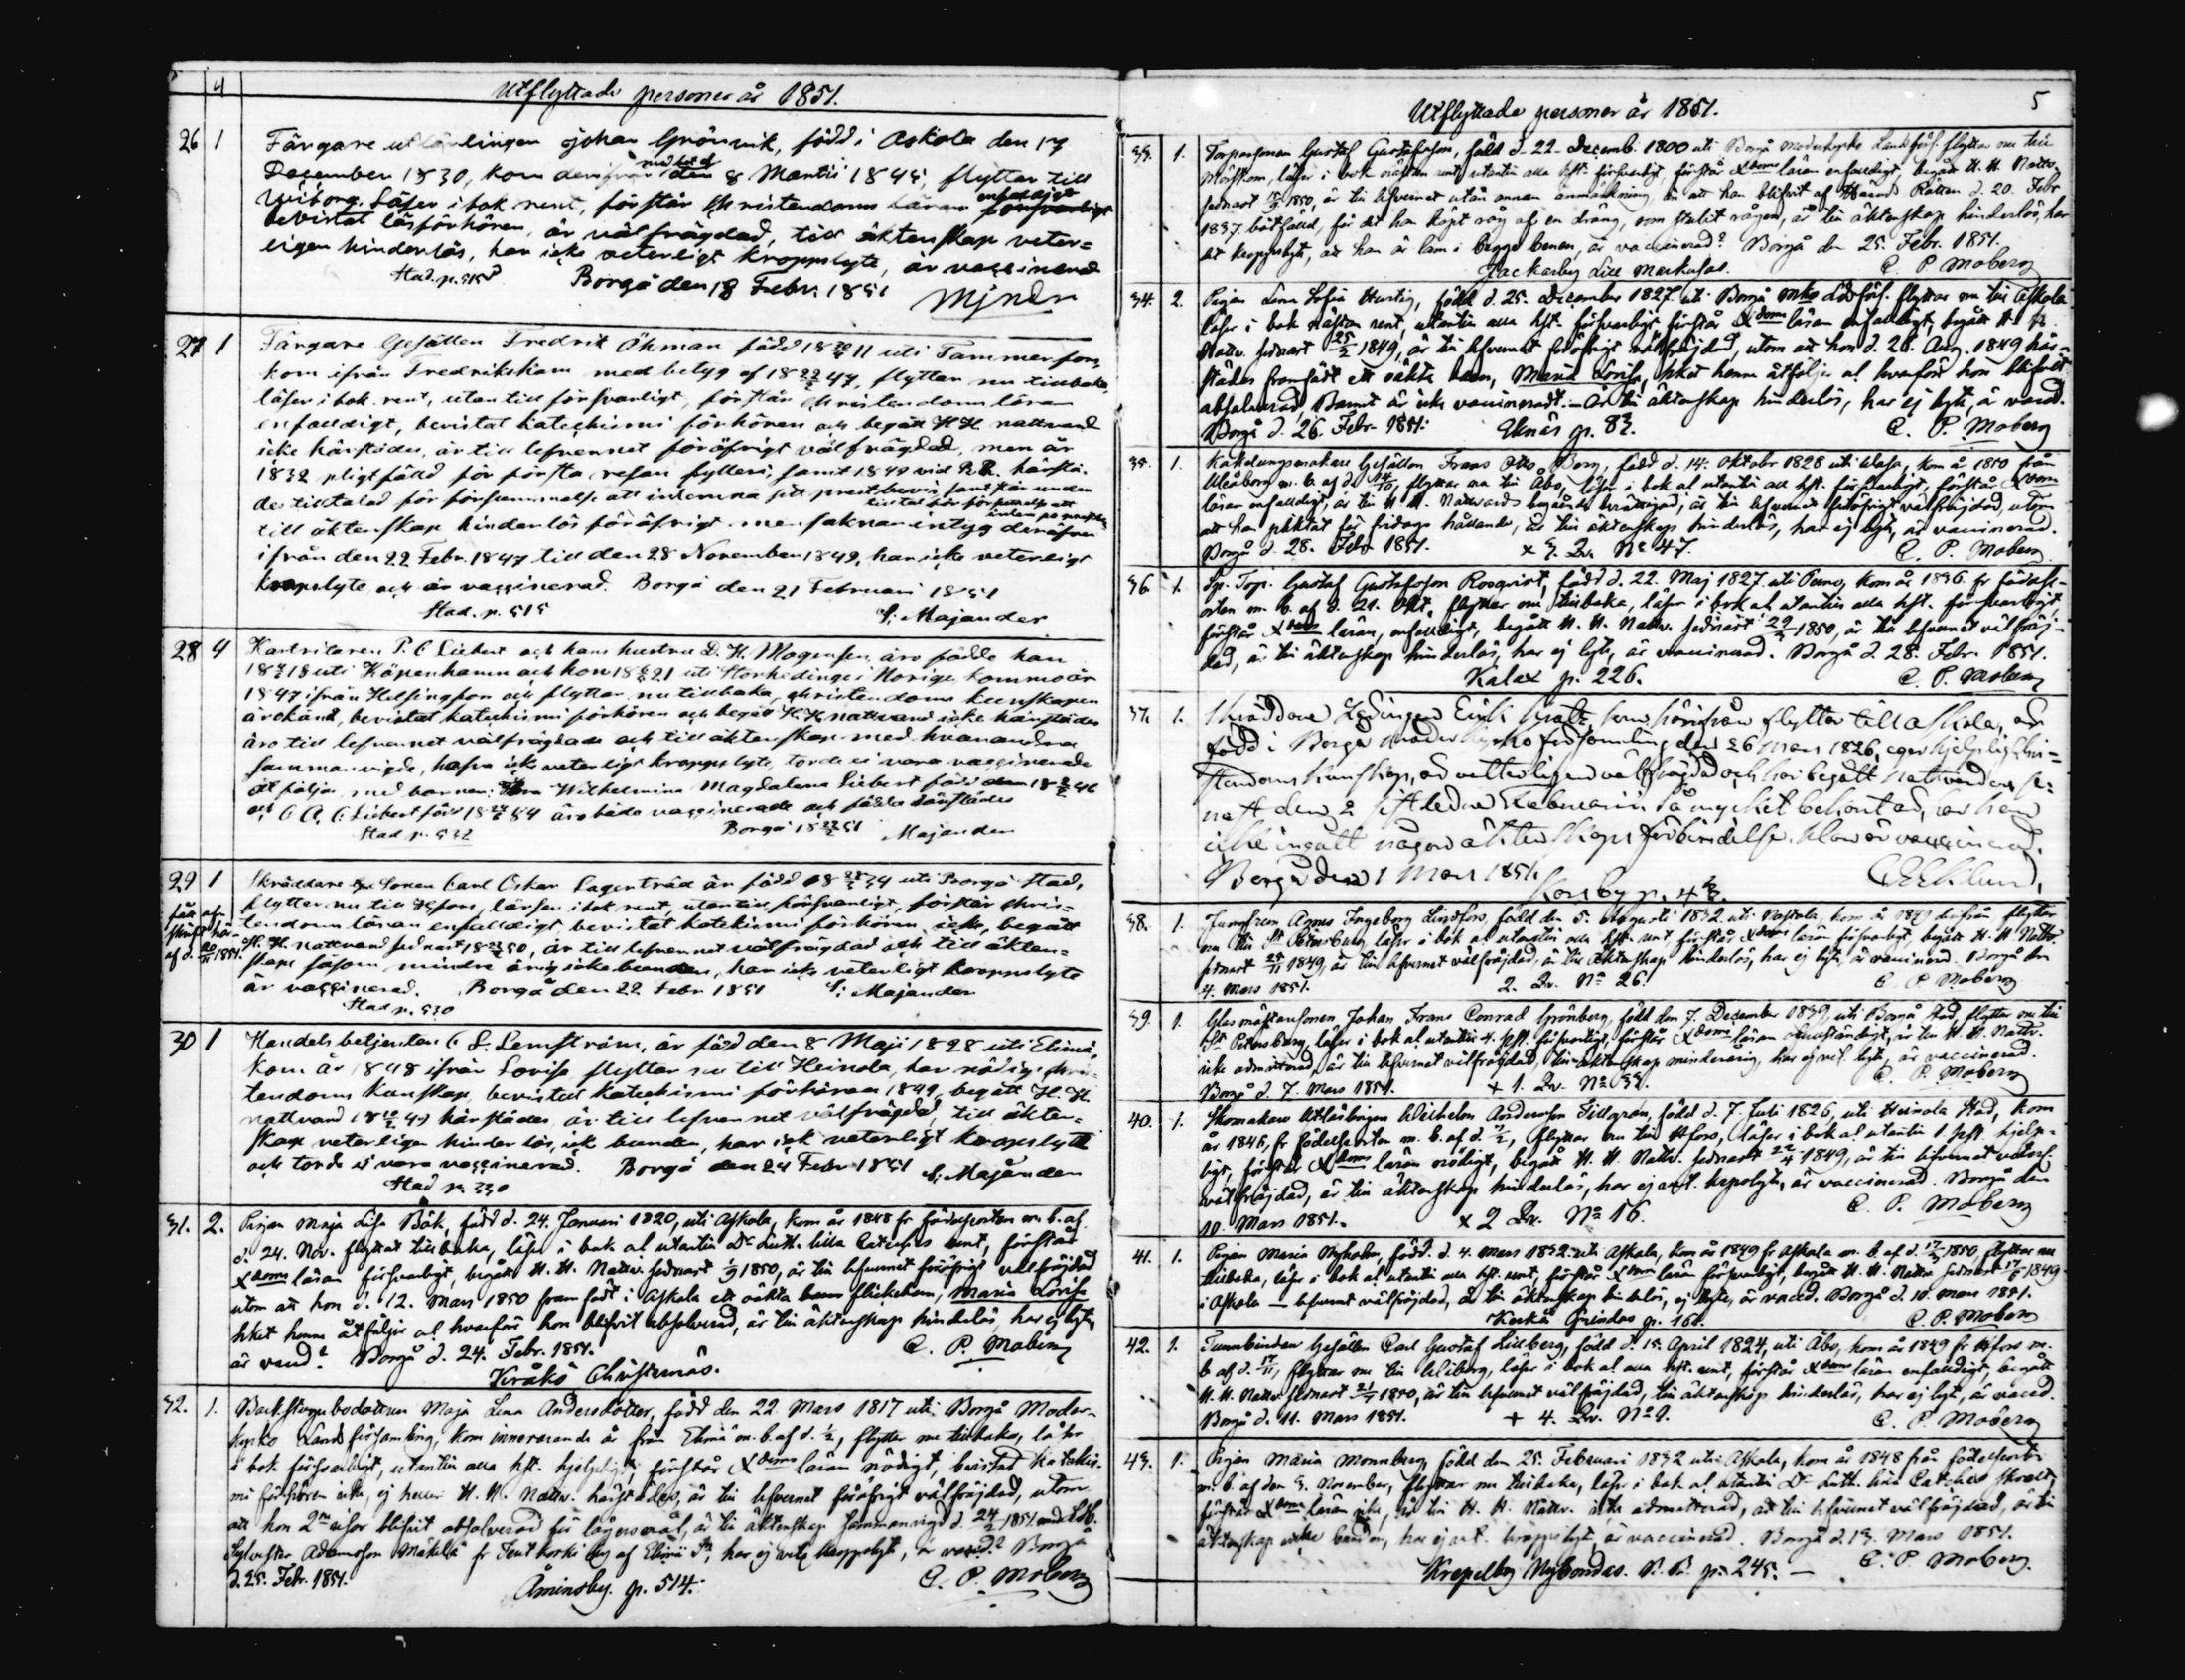 4
Utflyttade personer år 1851.
26 1 Färgare utlärlingen Johan Grönvik, född i Askola den 17
December 1830, kom derifrån med bet. af den 8 Martii 1845, flyttar till
Wiborg. Läser i bok rent, förstår Christendoms Läran enfaldigt
bevistat läsförhören, är välfrägdad, till äktenskap veter=
ligen hinderlös, har icke veterligt kroppslyte, är vaccinerad
Stad. p. 515 Borgå den 18 Febr. 1851
27 1 Färgare Gesällen Fredrik Ökman född 18 11 uti Tammerfors,
kom ifrån Fredrikshamn med betyg af 18 22/2 47, flyttar nu tillbaka,
läser i bok rent, utantill försvarligt, förstår Christendoms läran
enfaldigt, bevistat katechismi förhören och begått H. H. nattvard
icke härstädes, är till lefvernet föröfrigt välfrägdad, men är
1832 pligtfälld för första resan fylleri, samt 1849 vid R.R. härstä-
des tilltalad för försummelse att inlemna sitt prestbevis
till äktenskap hinderlös föröfrigt men saknar intyg deröfver
ifrån den 22 Febr. 1847 till den 28 November 1849, har icke veterligt
kroppslyte och är vaccinerad. Borgå den 21 Februari 1851
Stad. p. 515 S: Majander
28 4 Kartritaren P. C Liebert och hans hustru D. H. Mogensen, äro födde han
18 18 uti Köpenhamn och hon 18 21 uti Storhedinge i Norige, kommo år
1847 ifrån Helsingfors och flyttar nu tillbaka, christendoms kunskapen
är okänd, bevistat katechismi förhören och begått H. H. nattvard icke härstädes
äro till lefvernet välfrägdade och till äktenskap med hvarandra
sammanvigde, hafva icke veterligt kroppslyte, torde ei vara vaccinerade
åtföljas med barnen: Wilhelmina Magdalena Liebert född den 18 46
och C A. C Liebert född 18 äro båda vaccinerade och födda härstädes
Stad p. 532 Borgå 18 51 Majander
29 1 Skräddare Sonen Carl Oskar Lagerträd är född 18 34 uti Borgå Stad,
flyttar nu till Hfors, läser i bok rent, utantill försvarligt, förstår Chris-
tendoms läran enfaldigt, bevistat katekismi förhören icke, begått
H. H. nattvard sednast 18 50, är till lefvernet välfrägdad och till äkten-
skap såsom mindre årig icke bunden, har icke veterligt kroppslyte
är vaccinerad. Borgå den 22 Febr 1851 S: Majander
Stad p. 530
30 1 Handels betjenten C S. Lemström, är född den 8 Maji 1828 uti Elimä,
kom år 1848 ifrån Lovisa flyttar nu till Heinola, har nödig chris-
tendoms kunskap, bevistat katechismi förhören 1849, begått H. H.
nattvard 18 49 härstädes, är till lefvernet välfrägdad, till äkten-
skap veterligen hinderlös, icke bunden, har icke veterligt kroppslyte
och torde ei vara vaccinerad. Borgå den 24 Febr 1851 S: Majander
Stad p. 330
31. 2. Pigan Maja Lisa Bök, född d. 24. Januari 1820, uti Askola, kom år 1848 fr födelseorten m. b. af
d. 24. Nov. flyttat tillbaka, läser i bok al utantill Dr Luth. lilla Cateches rent, förstår
Xdoms läran försvarligt, begått H. H. Nattv. sednast 1/9 1850, är till lefvernet föröfrigt välfräjdad
utom att hon d. 12. Mars 1850 framfödt i Askola ett oäkta flickebarn, Maria Lovisa
hket henne åtföljer al hvarföre hon blifvit absolverad, är till äktenskap hinderlös, har ej lyte,
är vaccd. Borgå d. 24. Febr. 1851. C. P. Moberg
Kråkö Christernäs.
32. 1. Backstugubodottren Maja Lena Andersdotter, född den 22. Mars 1817 uti Borgå Moder-
kyrko Landsförsamling, kom innevarande år från Elimä m. b. af d. 1/2, flyttar nu tillbaka, läser
i bok försvarligt, utantill alla hft. hjelpligt, förstår Xdoms läran nödigt, bevistad Katekis-
mi förhören icke, ej heller H. H. Nattv. härstädes, är till lefvernet föröfrigt välfräjdad, utom
att hon 2ne resor blifvit absolverad för lägersmål, är till äktenskap sammanvigd d. 24/2 1851 med
Sylvester Adamsson Mäkelä fr by af Elimä Sn, har ej vetl. kroppslyte, är vaccd. Borgå
d. 25. Febr. 1851. Åminsby. p. 514. C. P. Moberg
5
Utflyttade personer år 1851.
33. 1. Torparsonen Gustaf Gustafsson, född d. 22. Decemb. 1800 uti Borgå Moderkyrko Landsförs. flyttar nu till
läser i bok nästan rent, utantill alla hft. försvarligt, förstår Xdoms läran enfaldigt, begått H. H. Nattv.
sednast 1850, är till lefvernet utan annan anmärkning, än att han blifvit af Härads Rätten d. 20. Febr.
1837 bötfälld, för det han köpt råg af en dräng, som stulit rågen, är till äktenskap hinderlös, har
det kroppslyte, att han är lam i begge benen, är vaccinerad? Borgå den 25. Febr. 1851.
Jackarby Lill Markusas. C. P. Moberg
34. 2. Pigan Lena Sofia Hurtig, född d. 25. December 1827 uti Borgå Mko Ldsförs. flyttar nu till Askola
läser i bok nästan rent, utantill alla hft. försvarligt förstår Xdoms läran enfaldigt, begått H. H.
Nattv. sednast 25/2 1849, är till lefvernet föröfrigt välfräjdad, utom att hon d. 28. Aug. 1849 här-
städes framfödt ett oäkta barn, Maria Lovisa, hket henne åtföljer al hvarföre hon blifvit
absolverad, Barnet är icke vaccineradt. Är till äktenskap hinderlös, har ej lyte, är vaccd.
Borgå d. 26. Febr. 1851. Eknäs p. 83. C. P. Moberg
35. 1. Kakelugnsmakare Gesällen Frans Otto Borg, född d. 14. Oktobr 1828 uti Wasa, kom år 1850 från
Uleåborg m. b. af d. 14/10, flyttar nu till Åbo, läser i bok al utantill all hft. försvarligt, förstår Xdoms
läran enfaldigt, är till H. H. Nattvards begående berättigad, är till lefvernet föröfrigt välfräjdad, utom
att han pliktat för fridags hållande, är till äktenskap hinderlös, har ej lyte, är vaccinerad.
Borgå d. 28. Febr 1851. No 47. C. P. Moberg
36 1. Gustaf Gustafsson Rosqvist, född d. 22. Maj 1827 uti Perno, kom år 1836 fr födelse-
orten m. b. af d. 21. Okt, flyttar nu tillbaka, läser i bok al utantill alla hft. försvarligt,
förstår Xdoms läran, enfaldigt, begått H. H. Nattv. sednast 1850, är till lefvernet välfräj-
dad, är till äktenskap hinderlös, har ej lyte, är vaccinerad. Borgå d. 28. Febr. 1851.
Kalax p. 226. C. P. Moberg
37. 1. Skräddare som härifrån flyttar till Askola, är
född i Borgå moder kyrko församling den 26 Mars 1826, eger hjelplig Chri-
stendoms kunskap, är vetterligen välfräjdad och har begått Nattvarden se-
nast den 2 sistledne Februarii så mycket bekant är, har han
icke ingått någon äktenskaps förbindelse. Han är vaccinerad.
Borgå den 1 Mars 1851.
38. 1. Jungfrun Agnes Ingeborg Lindfors, född den 5. Augusti 1832 uti Nastola, kom år 1849 derifrån, flyttar
nu till St Petersburg läser i bok al utantill alla hft. rent förstår Xdoms läran försvarligt, begått H. H. Nattv.
sednast 1849, är till lefvernet välfräjdad, är till äktenskap hinderlös, har ej lyte, är vaccinerad. Borgå den
4. Mars 1851. 2. Qv. No 26. C. P. Moberg
39. 1. Glasmästaresonen Johan Frans Conrad Grönberg, född den 7. December 1839, uti Borgå Stad, flyttar nu till
St Petersburg, läser i bok al utantill 4. hft. försvarligt, förstår Xdoms läran är till H. H. Nattv.
icke admitterad, är till lefvernet välfräjdad, till äktenskap minderårig, har ej vet. lyte, är vaccinerad.
Borgå d. 7. Mars 1851. + 1. Qv. No 33. C. P. Moberg
40. 1. Skomakare Utlärlingen Wilhelm Andersson Tillgren, född d. 7. Juli 1826, uti Heinola Stad, kom
år 1846, fr födelseorten m. b. af d. flyttar nu till Hfors, läser i bok al utantill 1. hft. hjelp-
ligt, förstår Xdoms läran nödigt, begått H. H. Nattv. sednast 1849, är till lefvernet veterl.
välfräjdad, är till äktenskap hinderlös, har ej vet. kropslyte, är vaccinerad. Borgå den
10. Mars 1851. x 2 Qv. No 16. C. P. Moberg
41. 1. Pigan Maria Nyholm, född. d. 4. Mars 1832 uti Askola, kom år 1849 fr Askola m. b. af d. 1850, flyttar nu
tillbaka, läser i bok al utantill alla hft. rent, förstår Xdoms läran försvarligt, begått H. H. Nattv. sednast 1849
i Askola — lefvernet välfräjdad, är till äktenskap hinderlös, ej lyte, är vaccd. Borgå d. 10. Mars 1851.
C. P. Moberg
42. 1. Tunnbindare Gesällen Carl Gustaf Lillberg, född d. 15. April 1824, uti Åbo, kom år 1849 fr Hfors m.
b. af d. flyttar nu till Wiborg, läser i bok al alla hft. rent, förstår Xdoms läran enfaldigt, begått
H. H. Nattv. sednast 1850, är till lefvernet välfräjdad, till äktenskap hinderlös, har ej lyte, är vaccd.
Borgå d. 11. Mars 1851. + 4. Qv. No 9. C. P. Moberg
43. 1. Pigan Maria Monnberg, född den 25. Februari 1832 uti Askola, kom år 1848 från födelseorten
m. b. af den 3. November, flyttar nu tillbaka, läser i bok al utantill Dr Luth. lilla Cateches
förstår Xdoms läran icke, är till H. H. Nattv. icke admitterad, är till lefvernet välfräjdad, är till
äktenskap icke bunden, har ej vet. kroppslyte, är vaccinerad. Borgå d. 13. Mars 1851.
Krepelby Nybondas. p. 245. — C. P. Moberg.